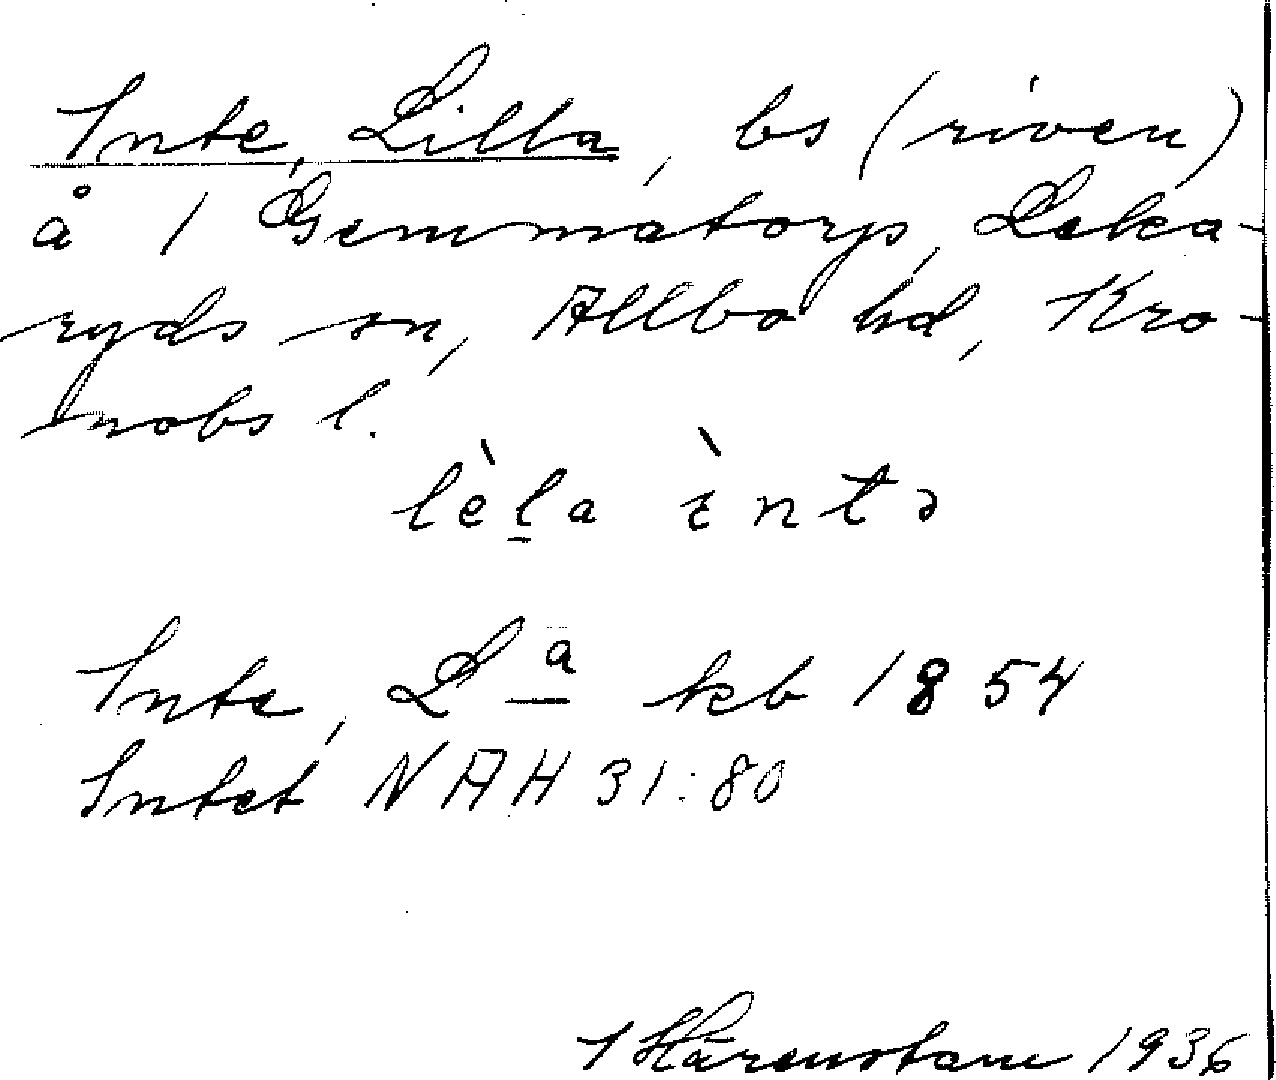 Inte, Lilla, bs (riven)
å 1 Gemmatorp, Leka-
ryds sn, Allbo hd, Kro-
nobs l.
lèla ìntə
Inte, Lª kb 1854
Intet NAH 31:80
1936